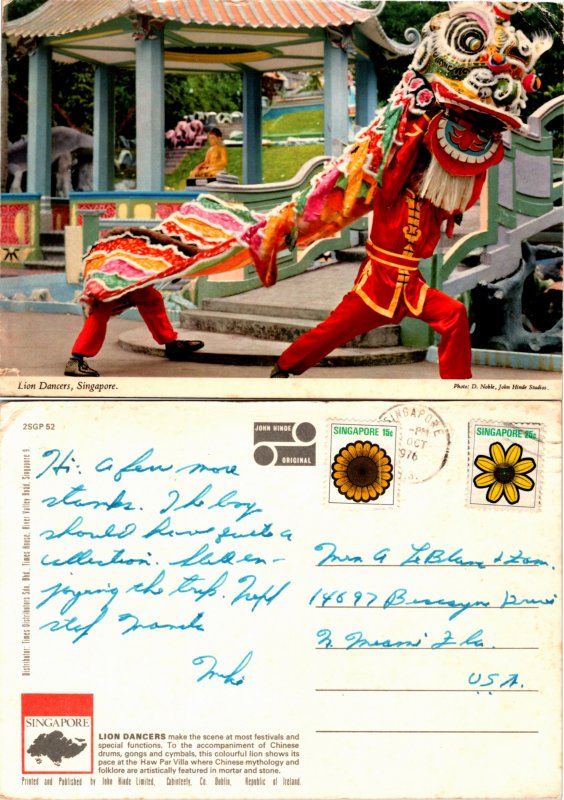 Lion Dancers, Singapore.
Photo: D. Noble, John Hinde Studios.
2SGP 52
JOHN HINDE
ORIGINAL
SINGAPORE 15c
SINGAPORE 25c
SINGAPORE
-PM
OCT
1976
Distributor: Times Distributors Sdn. Bhd., Times House, River Valley Road, Singapore 9.
Hi. A few more
stamps. The boy
should have quite a
collection. Still en-
joying the trip. Next
stop Manila
Mike
Mrs A LeBlanc & Fam.
14697 Biscayne Drive
N. Miami Fla.
U.S.A.
SINGAPORE
LION DANCERS make the scene at most festivals and
special functions. To the accompaniment of Chinese
drums, gongs and cymbals, this colourful lion shows its
pace at the Haw Par Villa where Chinese mythology and
folklore are artistically featured in mortar and stone.
Printed and Published by John Hinde Limited, Cabinteely, Co. Dublin, Republic of Ireland.